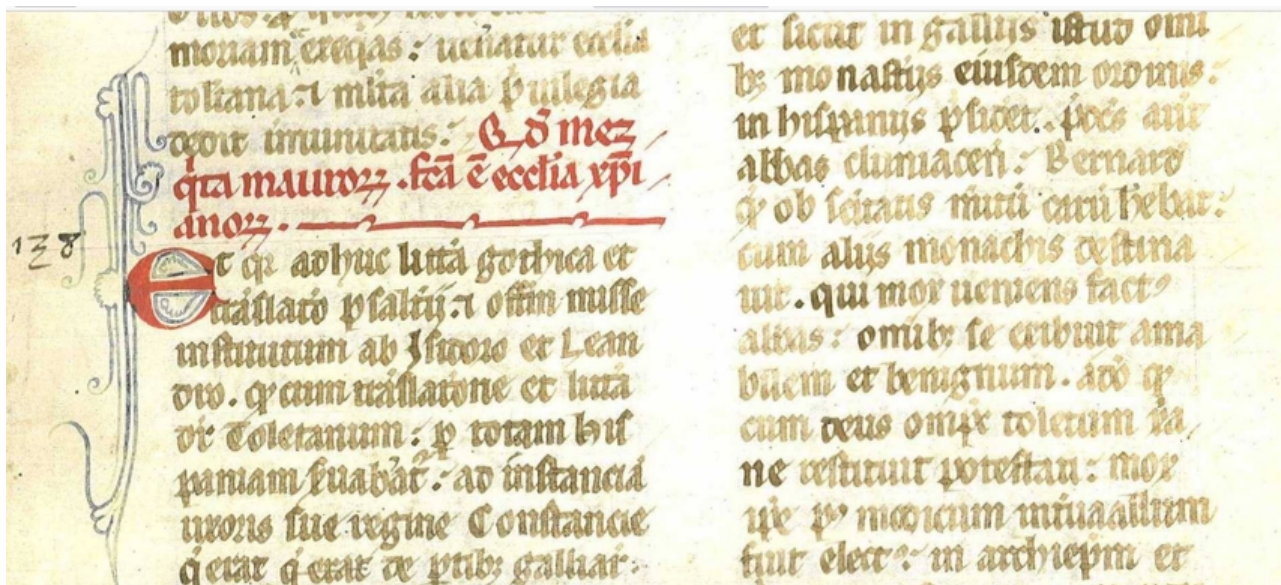 moriam erexas : ueneratur ecclia
toletana : ⁊ mlta alia p̉uilegia
dedit imunitatis :
q̉ta mauroꝝ . fcā ē ecclia xp̄i
anoꝝ .
138
Et qr adhuc litt̄a gothica et
trāslatō psaltij : ⁊ offm̄ misse
institutum ab Isidoro et Lean
dro . qcum trāslatone et litt̄a
dr̄ Toletanum : p totam his
paniam suabāt᷑ : ad instanciā
uxoris sue regine Constancie
q̉ erat q̉ erat de ptibꝫ galliaꝝ :
et sicut in gallijs istud omi
bꝫ monastijs eiusdem ordinis :
in hispanijs
abbas cluniaceñ : Bernard
q̉ ob scitatis
cum alijs monachis destina
uit . qui mox ueniens fact⁹
abbas : omibꝫ se exibuit ama
bilem et benignum . adō q
cum deus omp̄s toletum
ne restituit potestati : mox
fuit elect⁹ : in archiep̄m et